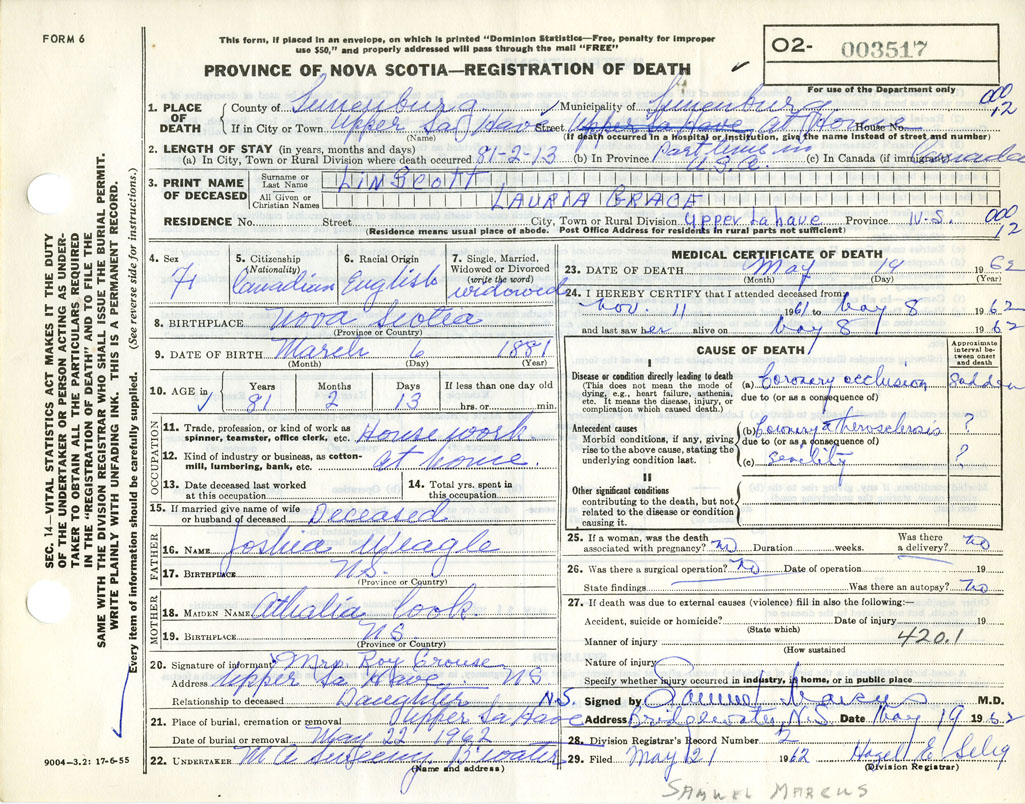 FORM 6
This form, if placed in an envelope, on which is printed "Dominion Statistics—Free, penalty for improper
use $50," and properly addressed will pass through the mail "FREE"
O2- 003517
PROVINCE OF NOVA SCOTIA—REGISTRATION OF DEATH
For use of the Department only
1. PLACE OF DEATH County of Lunenburg Municipality of Lunenburg 000 12
If in City or Town Upper La Have Street Upper La Have at Home House No.
(Name) (If death occurred in a Hospital or Institution, give the name instead of street and number)
2. LENGTH OF STAY (in years, months and days)
(a) In City, Town or Rural Division where death occurred 81-2-13 (b) In Province Part time in U.S.A. (c) In Canada (if immigrant) Canada
3. PRINT NAME OF DECEASED Surname or Last Name LINSCOTT
All Given or Christian Names LAURIA GRACE
RESIDENCE No. Street City, Town or Rural Division Upper Lahave Province N.S. 000 12
(Residence means usual place of abode. Post Office Address for residents in rural parts not sufficient)
4. Sex F
5. Citizenship (Nationality) Canadian
6. Racial Origin English
7. Single, Married, Widowed or Divorced (write the word) widowed
8. BIRTHPLACE Nova Scotia
(Province or Country)
9. DATE OF BIRTH March 6 1881
(Month) (Day) (Year)
10. AGE in Years Months Days If less than one day old
81 2 13 hrs. or min.
OCCUPATION
11. Trade, profession, or kind of work as spinner, teamster, office clerk, etc. House work
12. Kind of industry or business, as cotton-mill, lumbering, bank, etc. at home.
13. Date deceased last worked at this occupation
14. Total yrs. spent in this occupation
15. If married give name of wife or husband of deceased Deceased
FATHER
16. NAME Joshia Weagle
17. BIRTHPLACE N.S.
(Province or Country)
MOTHER
18. MAIDEN NAME Athalia Cook
19. BIRTHPLACE N.S.
(Province or Country)
20. Signature of informant Mrs. Roy Crouse
Address Upper La Have. NS
Relationship to deceased Daughter N.S.
21. Place of burial, cremation or removal Upper La Have
Date of burial or removal May 22 1962
22. UNDERTAKER B'water
(Name and address)
MEDICAL CERTIFICATE OF DEATH
23. DATE OF DEATH May 19 1962
(Month) (Day) (Year)
24. I HEREBY CERTIFY that I attended deceased from
Nov. 11 1961 to May 8 1962
and last saw her alive on May 8 1962
CAUSE OF DEATH
Approximate interval between onset and death
I
Disease or condition directly leading to death
(This does not mean the mode of dying, e.g., heart failure, asthenia, etc. It means the disease, injury, or complication which caused death.)
(a) Coronary occlusion Sudden
due to (or as a consequence of)
Antecedent causes
Morbid conditions, if any, giving rise to the above cause, stating the underlying condition last.
(b) Coronary atherosclerosis ?
due to (or as a consequence of)
(c) senility ?
II
Other significant conditions
contributing to the death, but not related to the disease or condition causing it.
25. If a woman, was the death associated with pregnancy? no Duration weeks. Was there a delivery? no
26. Was there a surgical operation? no Date of operation 19
State findings Was there an autopsy? no
27. If death was due to external causes (violence) fill in also the following:—
Accident, suicide or homicide? Date of injury 19
(State which)
Manner of injury 420.1
(How sustained)
Nature of injury
Specify whether injury occurred in industry, in home, or in public place
Signed by Samuel Marcus M.D.
Address Bridgewater, N.S. Date May 19 1962
28. Division Registrar's Record Number
29. Filed May 21 1962 Hazel E. Selig
(Division Registrar)
SAMUEL MARCUS
SEC. 14—VITAL STATISTICS ACT MAKES IT THE DUTY
OF THE UNDERTAKER OR PERSON ACTING AS UNDER-
TAKER TO OBTAIN ALL THE PARTICULARS REQUIRED
IN THE "REGISTRATION OF DEATH" AND TO FILE THE
SAME WITH THE DIVISION REGISTRAR WHO SHALL ISSUE THE BURIAL PERMIT.
WRITE PLAINLY WITH UNFADING INK. THIS IS A PERMANENT RECORD.
Every item of information should be carefully supplied. (See reverse side for instructions.)
9004—3.2: 17-6-55